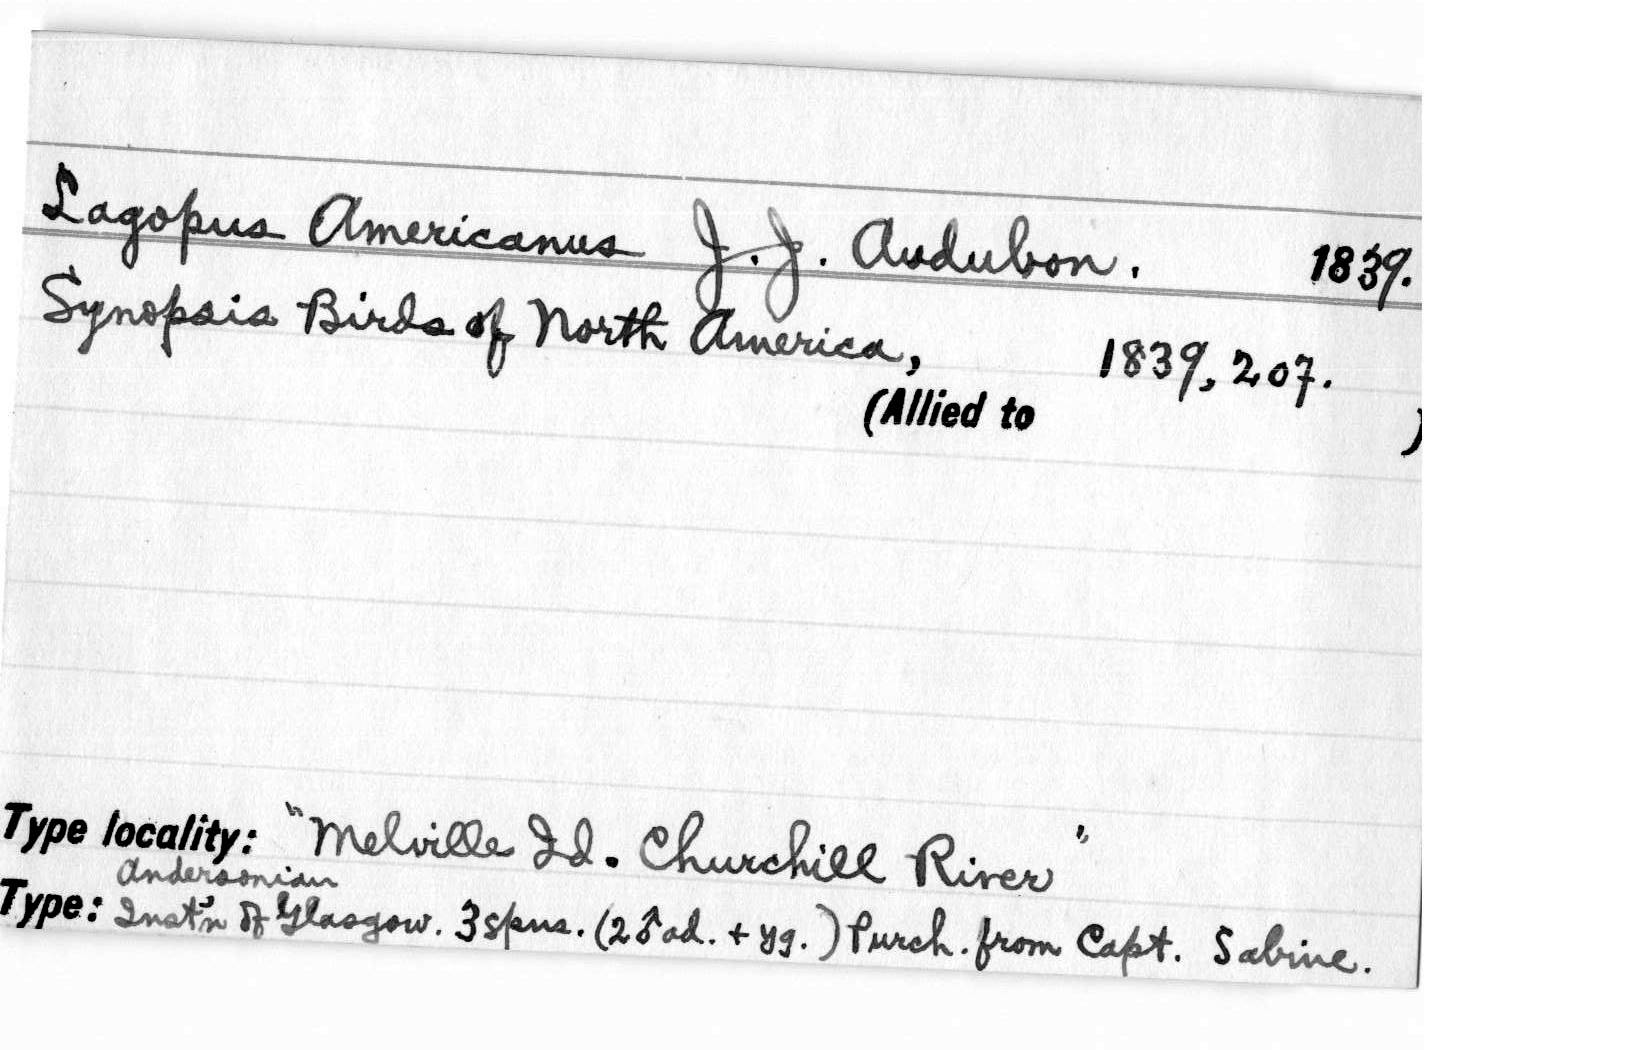 Lagopus Americanus J. J. Audubon. 1839.
Synopsis Birds of North America, 1839, 207.
(Allied to )
Type locality: "Melville Id. Churchill River"
Andersonian
Type: Inst'n of Glasgow. 3 spns. (2 ♂ ad. + yg.) Purch. from Capt. Sabine.